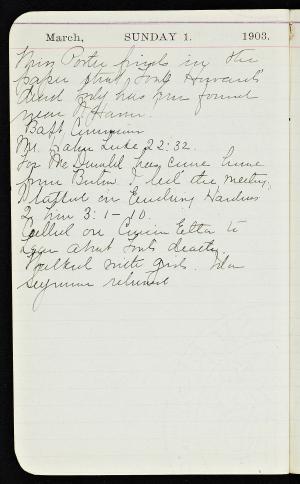 March, SUNDAY 1. 1903.
Miss Porter finds in the
paper that Tom Howard's
dead body has been found
near N. Haven.
Bapt. Communion
Mr. Luke 22:32.
has come home
from Boston. I led the meeting.
talked on Enduring Hardness
2 Tim 3:1-10.
Called on Cousin Etta to
hear about Tom's death
Walked with girls.
Seymour returned